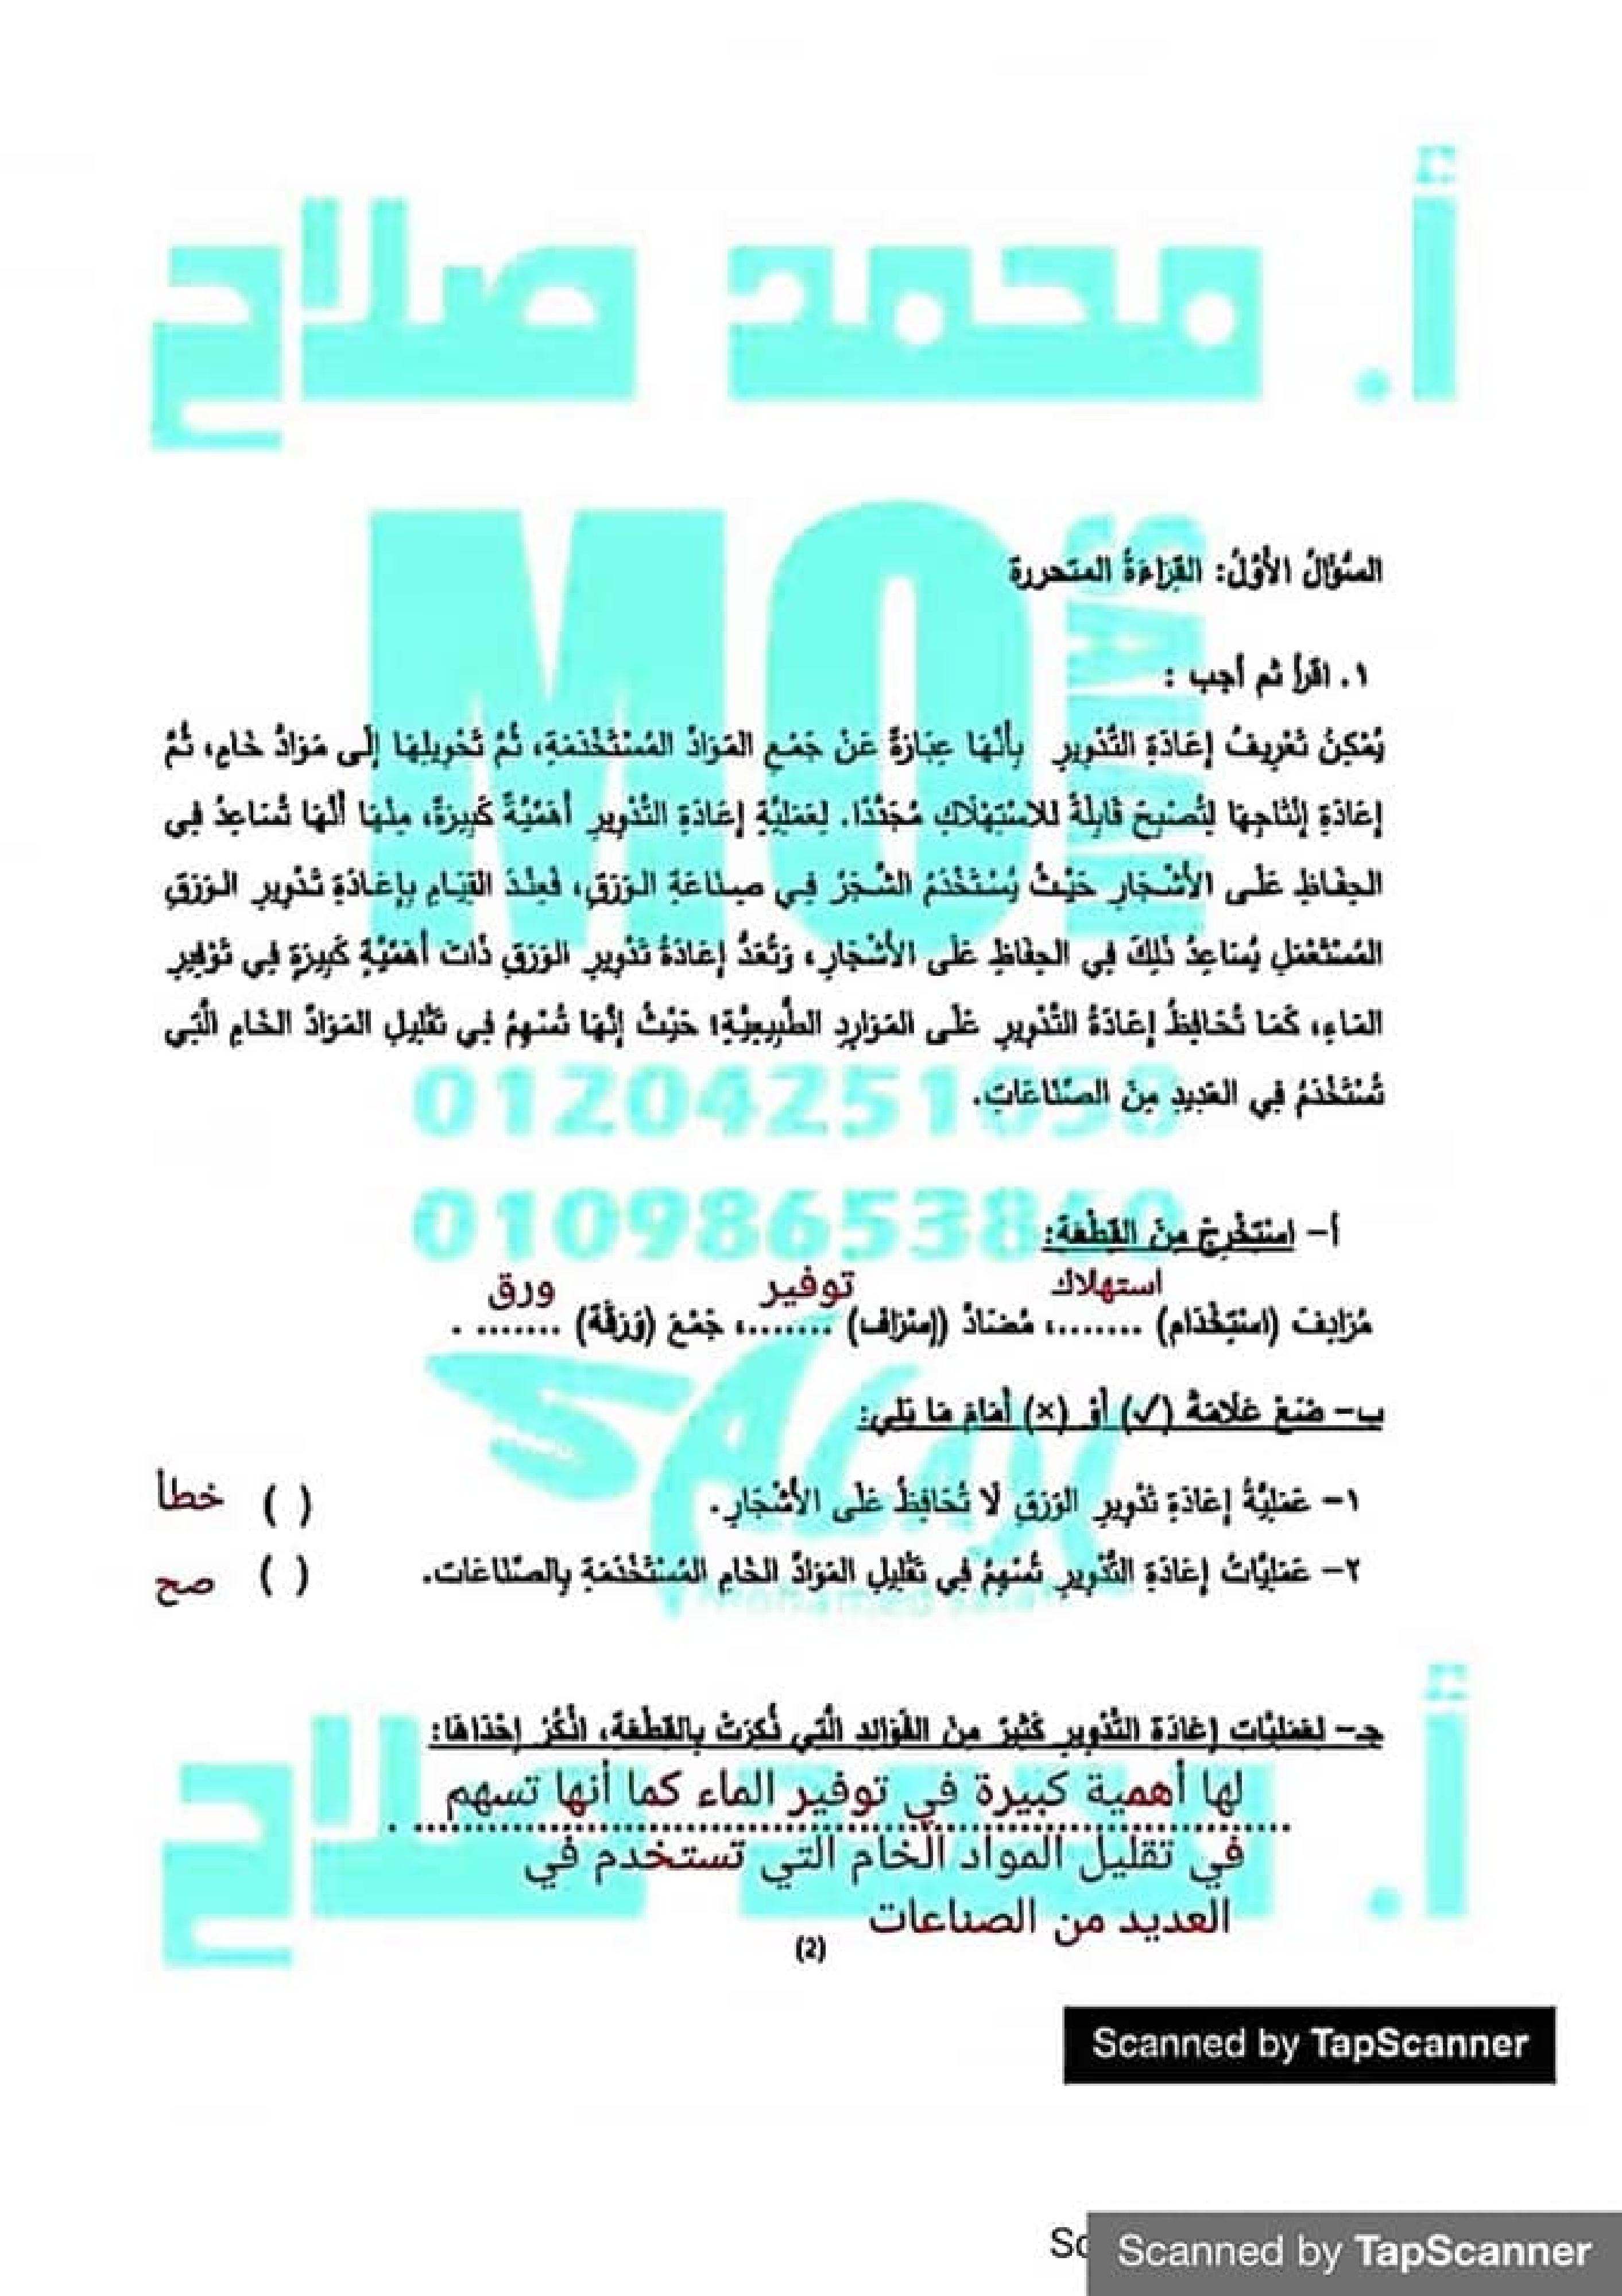 أ. محمد صلاح
MO
SALAH
السُّؤَالُ الأَوَّلُ: القِرَاءَةُ المتحررة
١. اقرأ ثم أجب :
يُمْكِنُ تَعْرِيفُ إِعَادَةِ التَّدْوِيرِ بِأَنَّهَا عِبَارَةٌ عَنْ جَمْعِ المَوَادِّ المُسْتَخْدَمَةِ، ثُمَّ تَحْوِيلِهَا إِلَى مَوَادَّ خَامٍ، ثُمَّ
إِعَادَةِ إِنْتَاجِهَا لِتُصْبِحَ قَابِلَةً للاسْتِهْلَاكِ مُجَدَّدًا. لِعَمَلِيَّةِ إِعَادَةِ التَّدْوِيرِ أَهَمِّيَّةٌ كَبِيرَةٌ، مِنْهَا أَنَّهَا تُسَاعِدُ فِي
الحِفَاظِ عَلَى الأَشْجَارِ حَيْثُ يُسْتَخْدَمُ الشَّجَرُ فِي صِنَاعَةِ الوَرَقِ، فَعِنْدَ القِيَامِ بِإِعَادَةِ تَدْوِيرِ الوَرَقِ
المُسْتَعْمَلِ يُسَاعِدُ ذَلِكَ فِي الحِفَاظِ عَلَى الأَشْجَارِ، وَتُعَدُّ إِعَادَةُ تَدْوِيرِ الوَرَقِ ذَاتَ أَهَمِّيَّةٍ كَبِيرَةٍ فِي تَوْفِيرِ
المَاءِ، كَمَا تُحَافِظُ إِعَادَةُ التَّدْوِيرِ عَلَى المَوَارِدِ الطَّبِيعِيَّةِ؛ حَيْثُ إِنَّهَا تُسْهِمُ فِي تَقْلِيلِ المَوَادِّ الخَامِ الَّتِي
تُسْتَخْدَمُ فِي العَدِيدِ مِنَ الصِّنَاعَاتِ.
أ- اسْتَخْرِجْ مِنَ القِطْعَةِ:
استهلاك توفير ورق
مُرَادِفَ (اسْتِخْدَام) .......، مُضَادَّ (إِسْرَاف) .......، جَمْعَ (وَرَقَة) ....... .
ب- ضَعْ عَلَامَةَ (✓) أَوْ (×) أَمَامَ مَا يَلِي:
١- عَمَلِيَّةُ إِعَادَةِ تَدْوِيرِ الوَرَقِ لَا تُحَافِظُ عَلَى الأَشْجَارِ. ( ) خطأ
٢- عَمَلِيَّاتُ إِعَادَةِ التَّدْوِيرِ تُسْهِمُ فِي تَقْلِيلِ المَوَادِّ الخَامِ المُسْتَخْدَمَةِ بِالصِّنَاعَاتِ. ( ) صح
جـ- لعَمَلِيَّات إِعَادَة التَّدْوِيرِ كَثِيرٌ مِنَ الفَوَائِدِ الَّتِي ذُكِرَتْ بِالقِطْعَةِ، اذْكُرْ إِحْدَاهَا:
لها أهمية كبيرة في توفير الماء كما أنها تسهم
في تقليل المواد الخام التي تستخدم في
العديد من الصناعات
أ. محمد صلاح
(2)
Scanned by TapScanner
Scanned by TapScanner